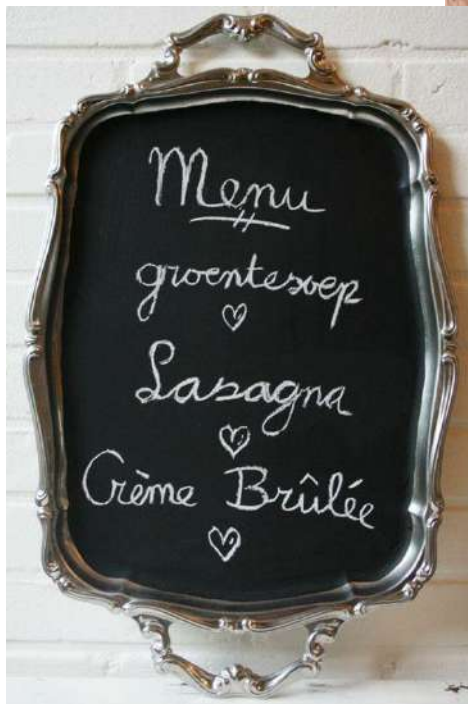 Menu
groentesoep
Lasagna
Crème Brûlée